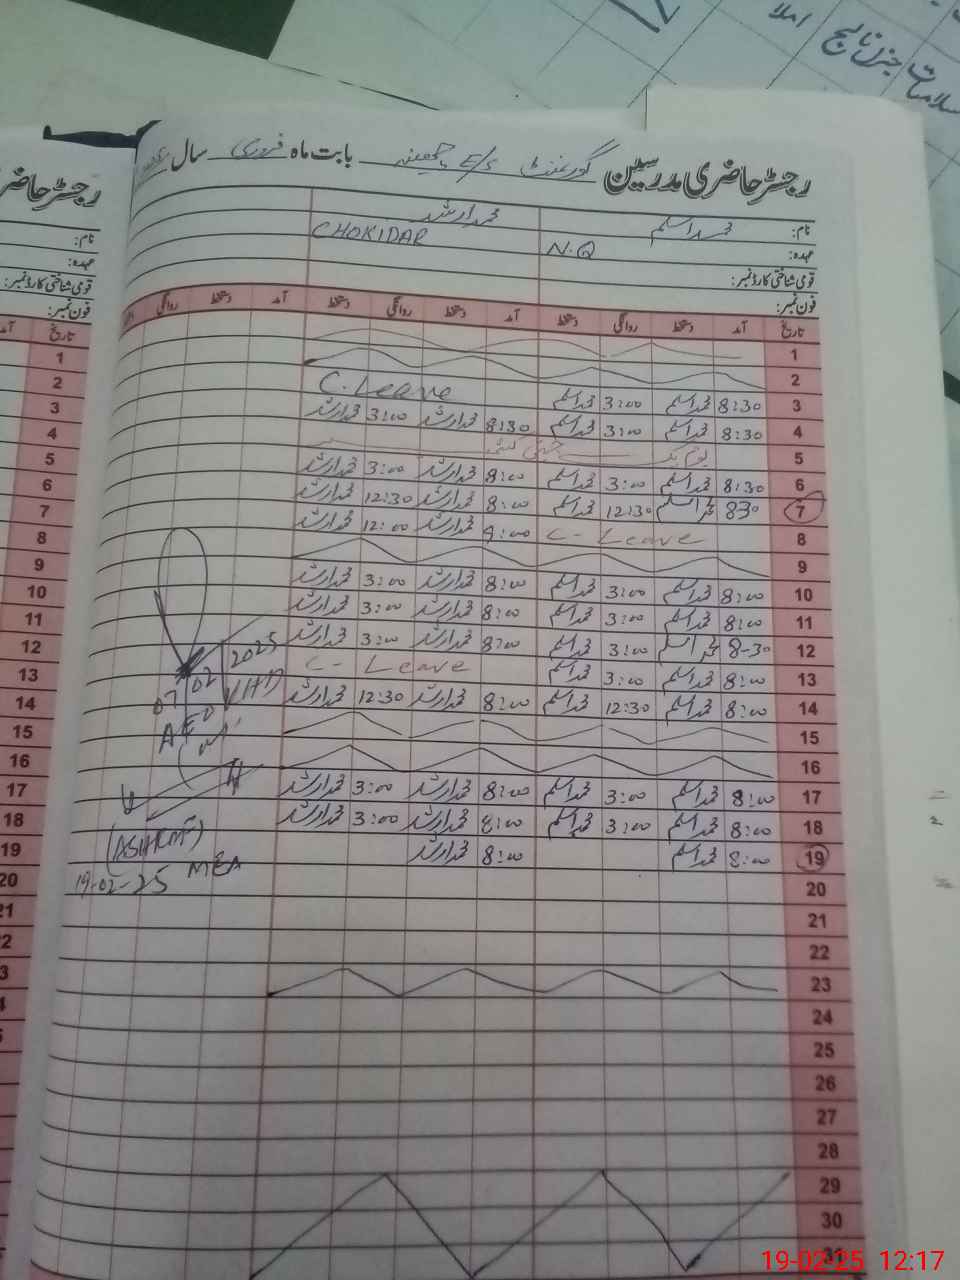 سلامیات جنرل نالج املا
رجسٹر حاضری مدرسین گورنمنٹ E/S بابت ماہ فروری سال
نام: محمد اسلم محمد ارشد
عہدہ: N.Q CHOKIDAR
قومی شناختی کارڈ نمبر:
فون نمبر:
تاریخ آمد دستخط روانگی دستخط آمد دستخط روانگی دستخط آمد دستخط روانگی
1
2
3 8:30 محمد اسلم 3:00 محمد اسلم C. Leave
4 8:30 محمد اسلم 3:00 محمد اسلم 8:30 محمد ارشد 3:00 محمد ارشد
5
6 8:30 محمد اسلم 3:00 محمد اسلم 8:00 محمد ارشد 3:00 محمد ارشد
7 830 محمد اسلم 12:30 محمد اسلم 8:00 محمد ارشد 12:30 محمد ارشد
8 C - Leave 9:00 محمد ارشد 12:00 محمد ارشد
9
10 8:00 محمد اسلم 3:00 محمد اسلم 8:00 محمد ارشد 3:00 محمد ارشد
11 8:00 محمد اسلم 3:00 محمد اسلم 8:00 محمد ارشد 3:00 محمد ارشد
12 8-30 محمد اسلم 3:00 محمد اسلم 8:00 محمد ارشد 3:00 محمد ارشد
13 8:00 محمد اسلم 3:00 محمد اسلم C - Leave
14 8:00 محمد اسلم 12:30 محمد اسلم 8:00 محمد ارشد 12:30 محمد ارشد
15
16
17 8:00 محمد اسلم 3:00 محمد اسلم 8:00 محمد ارشد 3:00 محمد ارشد
18 8:00 محمد اسلم 3:00 محمد اسلم 8:00 محمد ارشد 3:00 محمد ارشد
19 8:00 محمد اسلم 8:00 محمد ارشد
20
21
22
23
24
25
26
27
28
29
30
31
07/02/2025
AEO
(ASHRAF)
MEA
19-02-25
رجسٹر حاضر
نام:
عہدہ:
قومی شناختی کارڈ نمبر:
فون نمبر:
تاریخ آمد
1
2
3
4
5
6
7
8
9
10
11
12
13
14
15
16
17
18
19
20
21
19-02-25 12:17